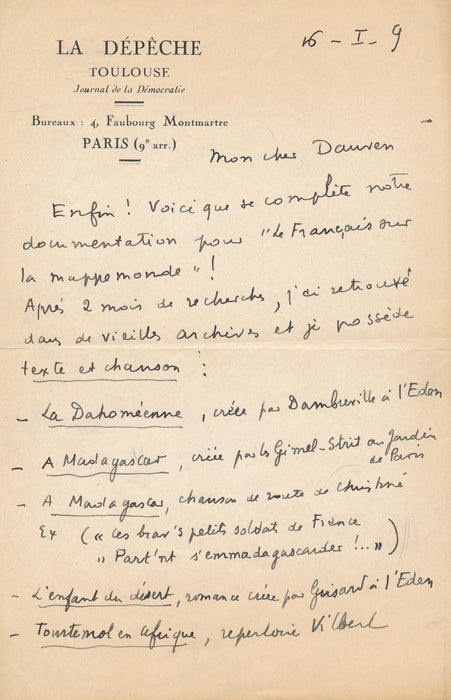 LA DÉPÊCHE
TOULOUSE
Journal de la Démocratie
Bureaux : 4, Faubourg Montmartre
PARIS (9e arr.)
16 - I - 9
Mon cher Dauven
Enfin ! Voici que se complète notre
documentation pour "Le Français sur
la mappemonde" !
Après 2 mois de recherches, j'ai retrouvé
dans de vieilles archives et je possède
texte et chanson :
- La Dahoméenne, créée par Dambreville à l'Eden
- A Madagascar, créée par les Gimel-Strit au Jardin
de Paris
- A Madagascar, chanson de route de Christiné
Ex (« Ces brav's petits soldats de France
" Part'nt s'emmadagascarder !.. »)
- L'enfant du désert, romance créée par Guisard à l'Eden
- Tourtemol en Afrique, repertoire Vilbert